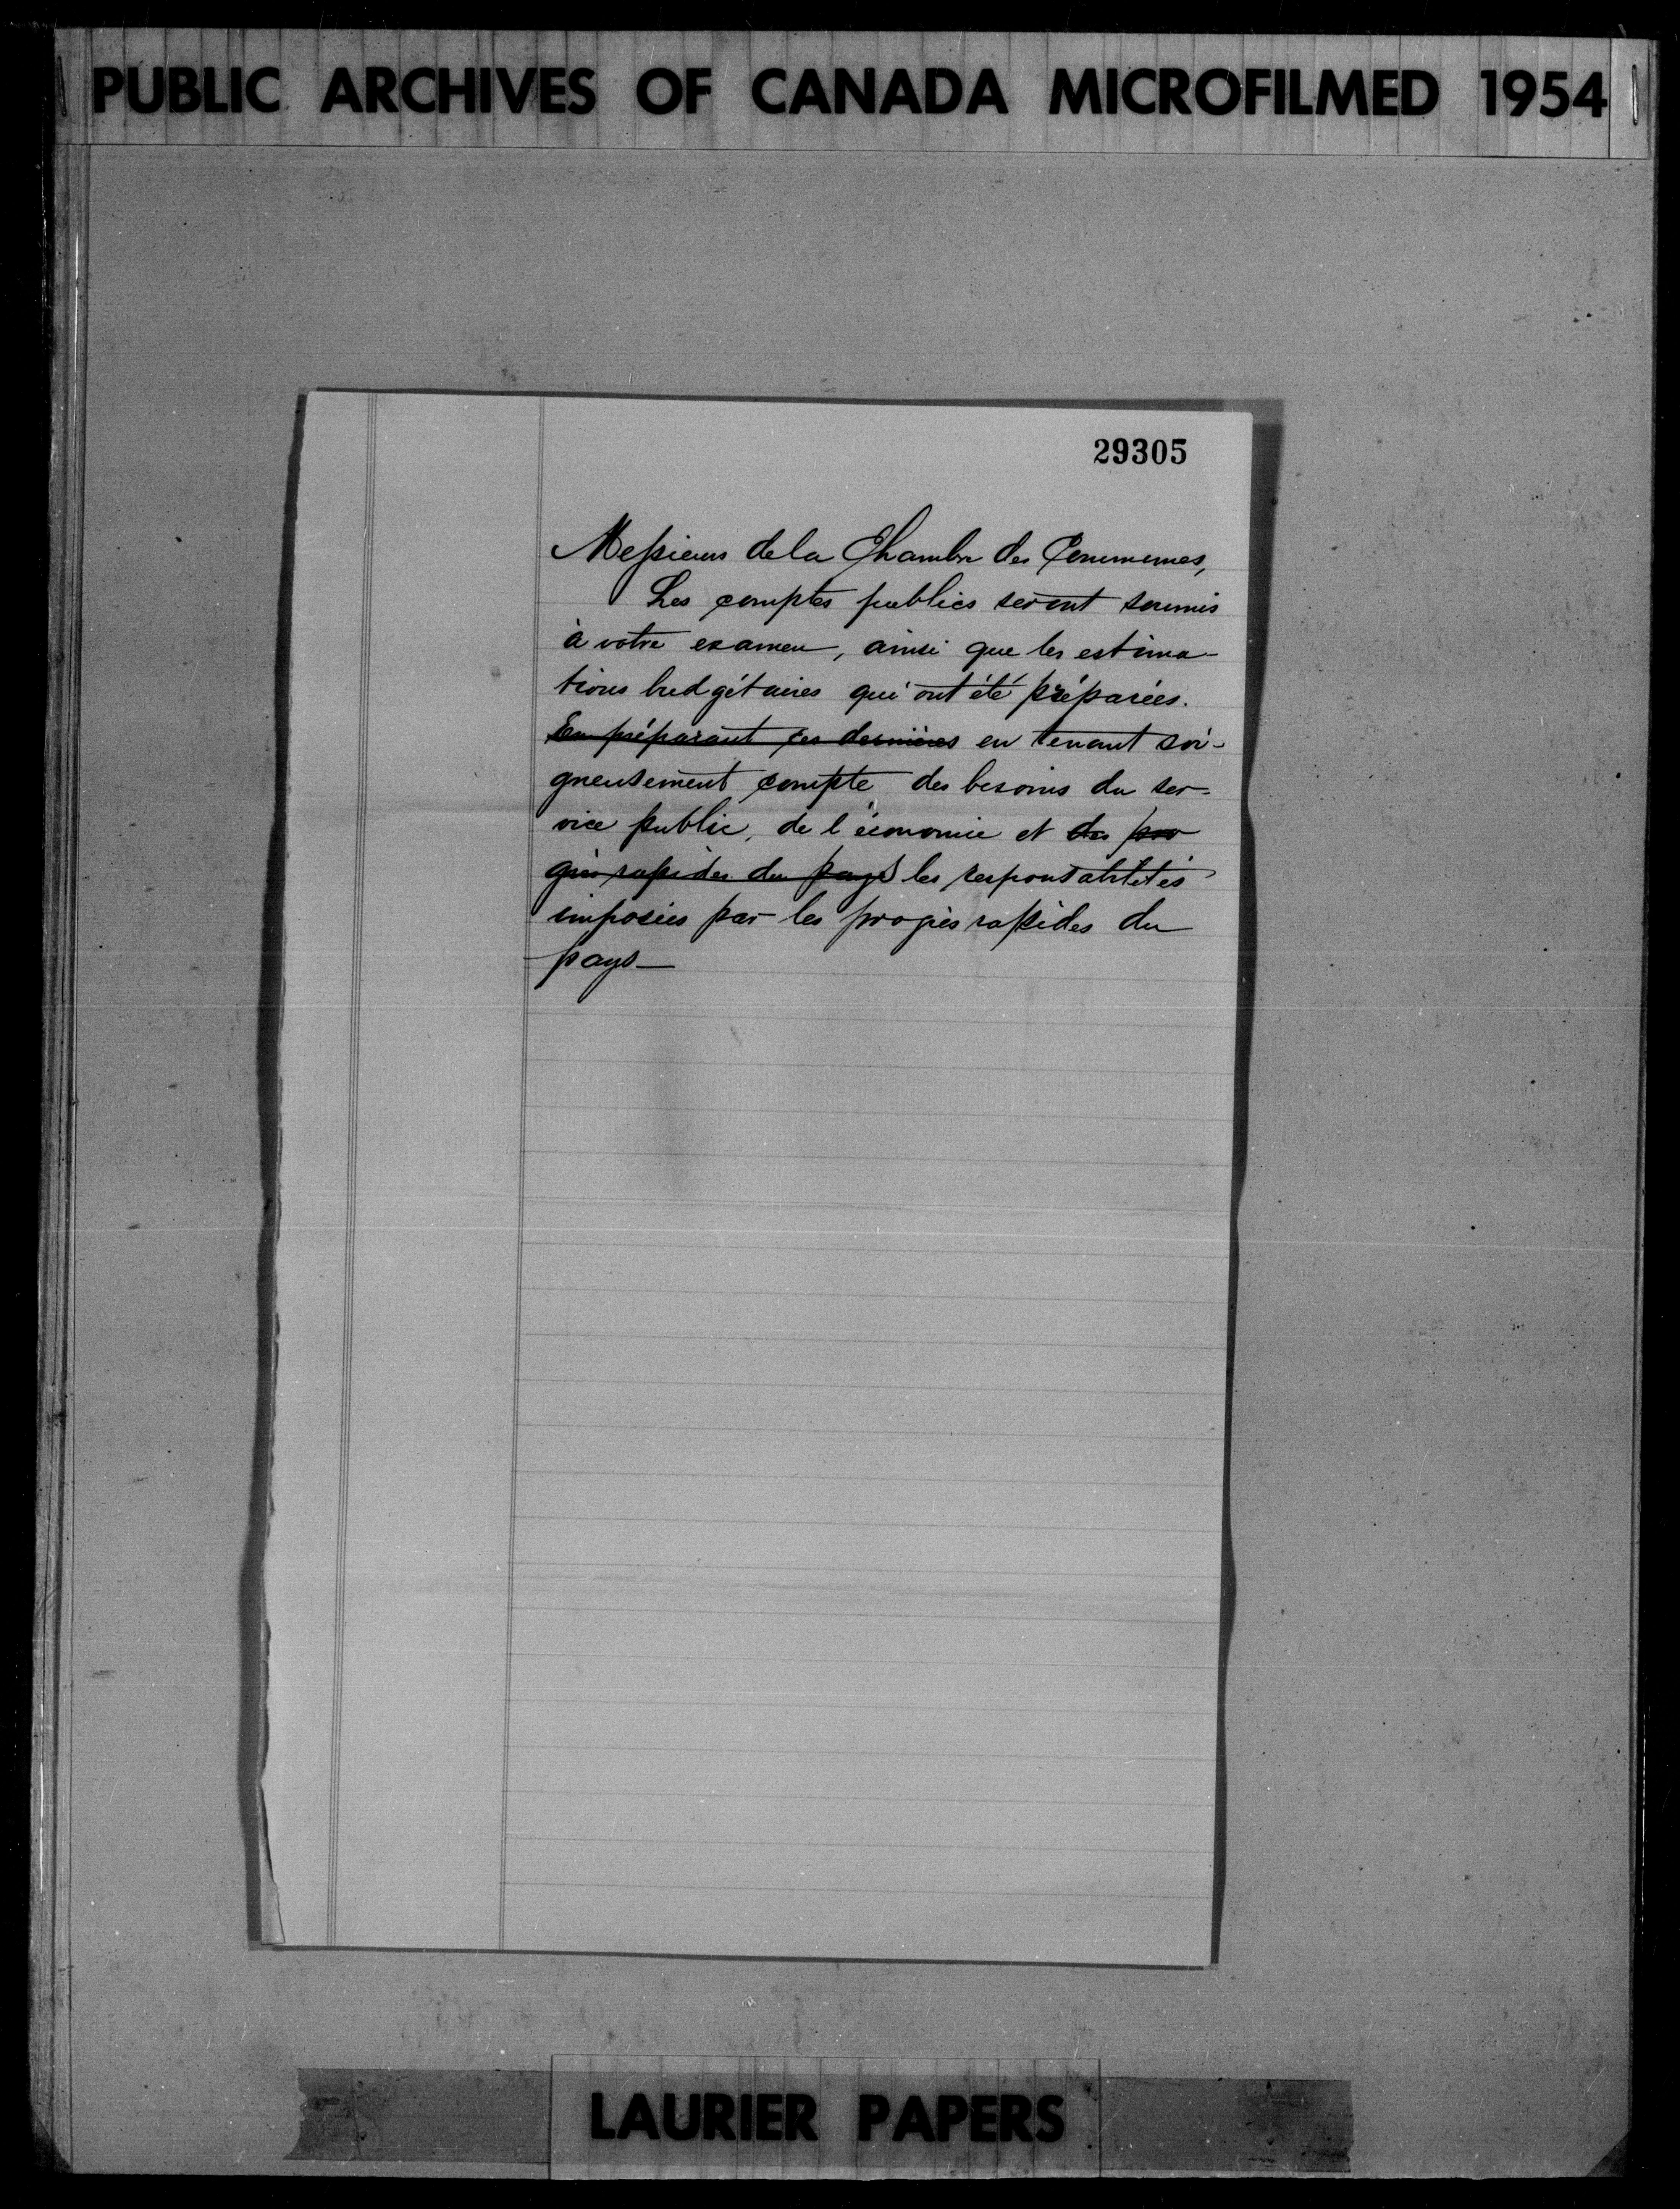 PUBLIC ARCHIVES OF CANADA MICROFILMED 1954
29305
Messieurs de la Chambre des Communes,
Les comptes publics seront soumis
à votre examen, ainsi que les estima-
tions budgétaires qui ont été préparées.
En préparant ces dernières en tenant soi-
gneusement compte des besoins du ser-
vice public, de l'économie et des pro
grès rapides du pays les responsabilités
imposées par les progrès rapides du
pays—
LAURIER PAPERS